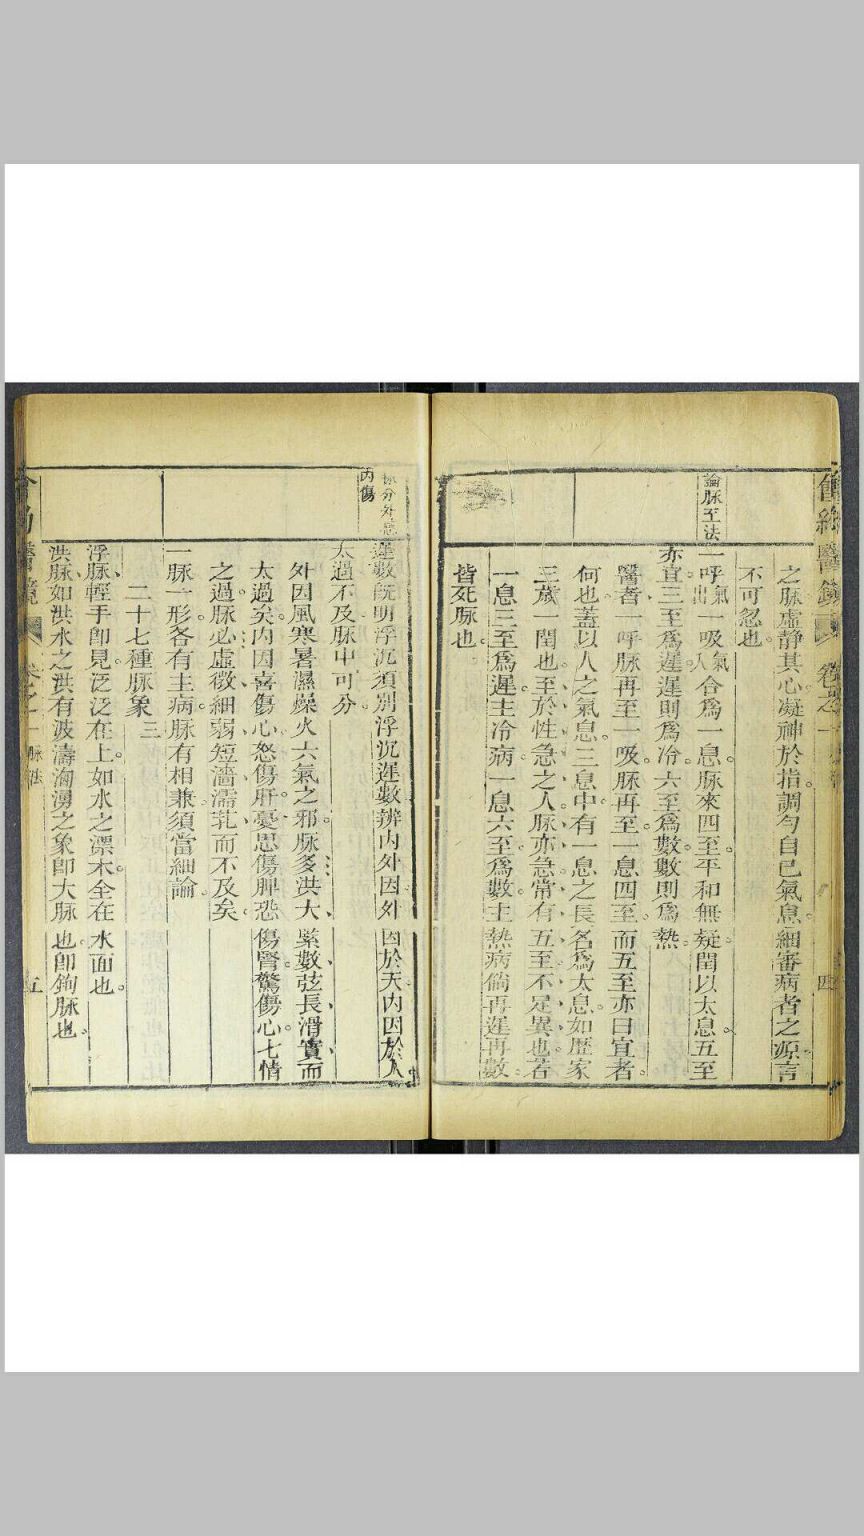 論脉至法
之脉虛靜其心凝神於指調勻自己氣息細審病者之源言
不可忽也
一呼氣出一吸氣入合爲一息脉來四至平和無疑閏以太息五至
亦宜三至爲遲遲則爲冷六至爲數數則爲熱
醫者一呼脉再至一吸脉再至一息四至而五至亦曰宜者
何也蓋以人之氣息三息中有一息之長名爲太息如歷家
三歲一閏也至於性急之人脉亦急常有五至不足異也若
一息三至爲遲主冷病一息六至爲數主熱病倘再遲再數
皆死脉也
脉分外感
內傷
遲數既明浮沉須別浮沉遲數辨內外因外因於天內因於人
太過不及脉中可分
外因風寒暑濕燥火六氣之邪脉多洪大緊數弦長滑實而
太過矣內因喜傷心怒傷肝憂思傷脾恐傷腎驚傷心七情
之過脉必虛微細弱短濇濡芤而不及矣
一脉一形各有主病脉有相兼須當細論
二十七種脉象三
浮脉輕手即見泛泛在上如水之漂木全在水面也
洪脉如洪水之洪有波濤洶湧之象即大脉也即鉤脉也
卷之一
脉法
五